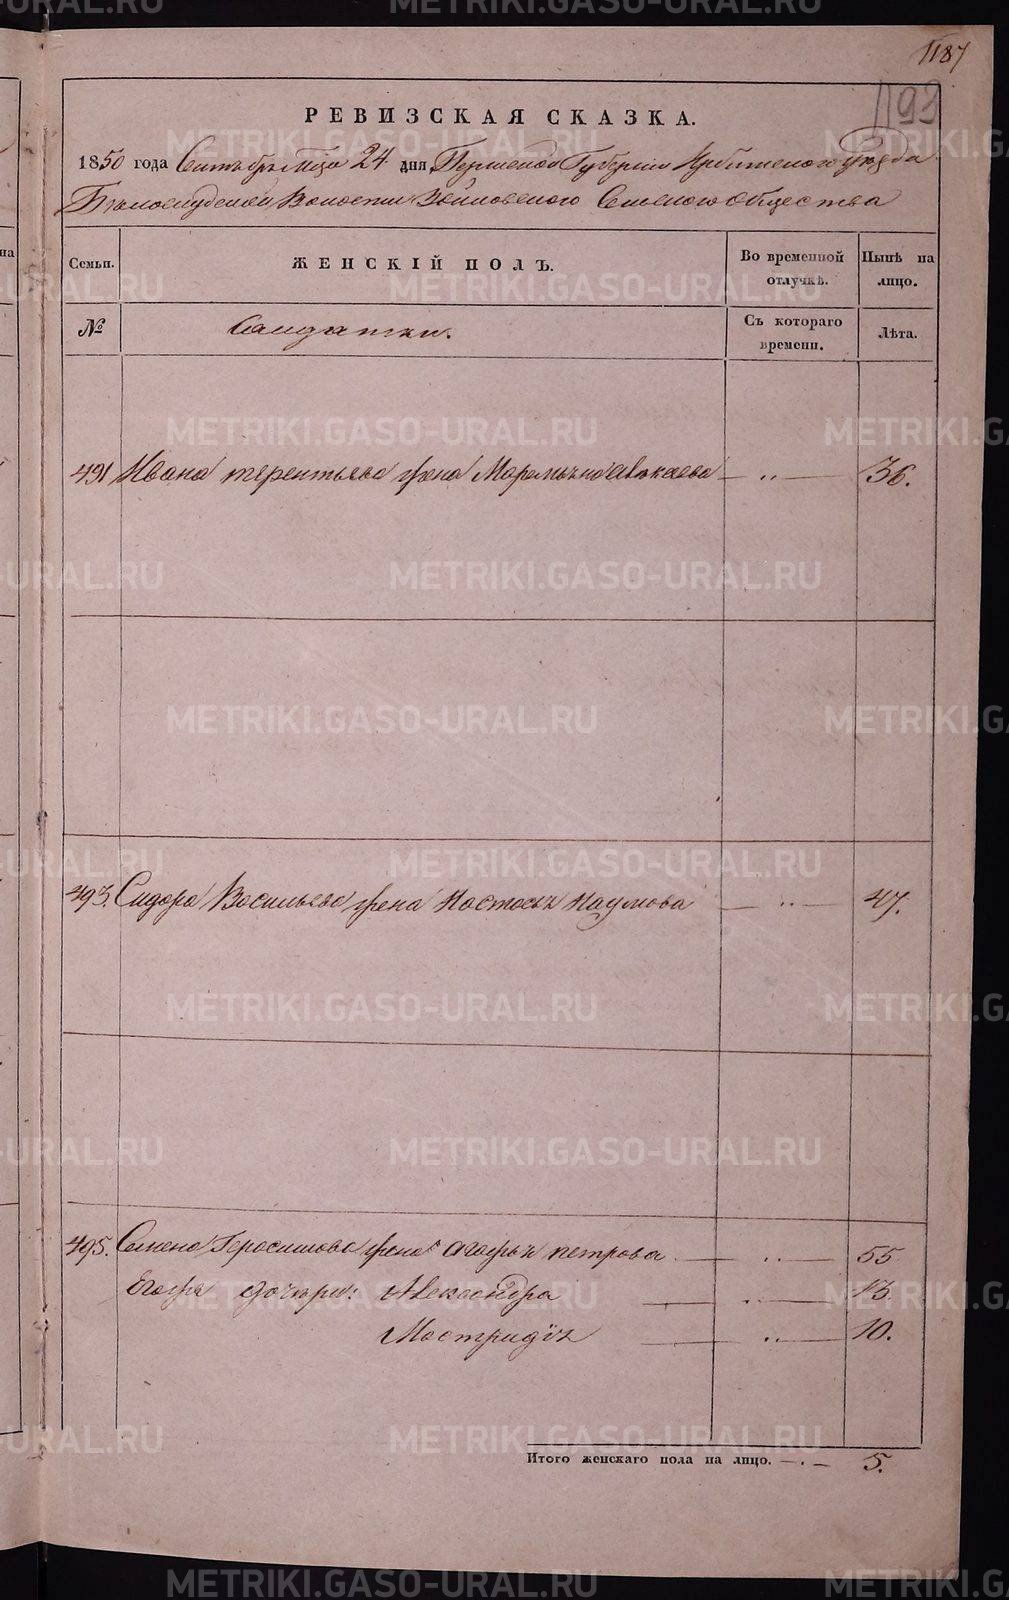 1187
1193
РЕВИЗСКАЯ СКАЗКА.
1850 года Сентября М҃ца 24 дня Пермской Губернии Ирбитского Уезда
Белослудской Волости Сельского общества
Семьи. ЖЕНСКІЙ ПОЛЪ. Во временной отлучкѣ. Нынѣ на лицо.
№ Салдатки. Съ котораго времени. Лѣта.
491 Ивана терентьева жена Маремьяна — " — 36.
493. Сидора Васильева жена Настасья Наумова — " — 47.
495. Семена Герасимова жена агафья петрова — " — 55
Егофь дочери: Александра — " — 13
Мастридія — " — 10.
Итого женскаго пола на лицо. — " — 5.
METRIKI.GASO-URAL.RU